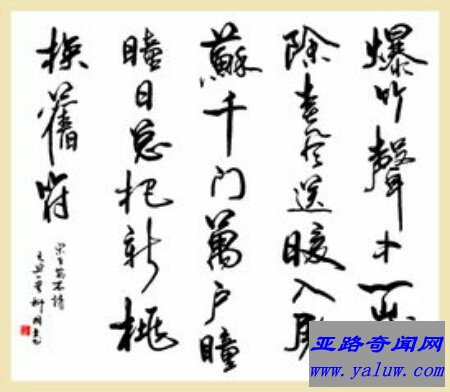 爆竹聲中一歲
除春风送暖入屠
蘇千门萬户瞳
瞳日总把新桃
换舊符
宋王安石詩
亚路奇闻网
www.yaluw.com